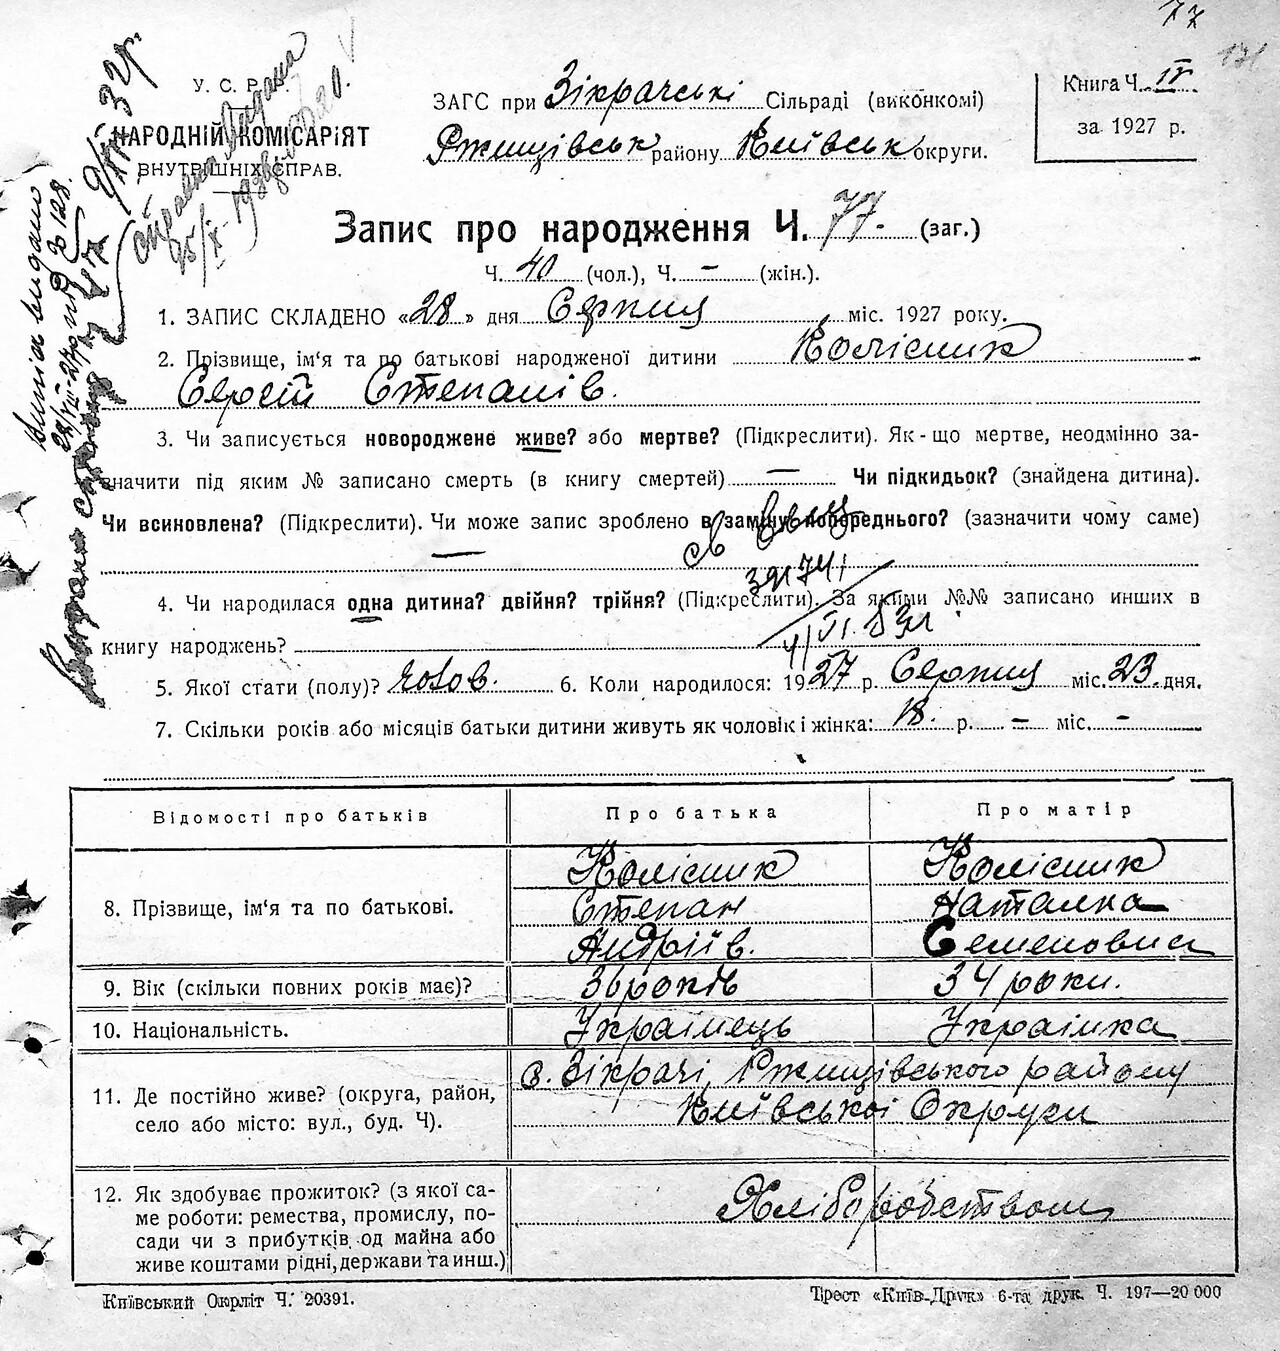 77
171
У. С. Р. Р.
НАРОДНІЙ КОМІСАРІЯТ
ВНУТРІШНІХ СПРАВ.
ЗАГС при Зікрачські Сільраді (виконкомі)
Ржищівськ району Київськ округи.
Книга Ч. IV
за 1927 р.
Запис про народження Ч. 77. (заг.)
Ч. 40 (чол.), Ч. – (жін.).
1. ЗАПИС СКЛАДЕНО «28» дня Серпня міс. 1927 року.
2. Прізвище, ім'я та по батькові народженої дитини Колісник
Сергій Степанів.
3. Чи записується новороджене живе? або мертве? (Підкреслити). Як-що мертве, неодмінно за-
значити під яким № записано смерть (в книгу смертей) — Чи підкидьок? (знайдена дитина).
Чи всиновлена? (Підкреслити). Чи може запис зроблено в заміну попереднього? (зазначити чому саме)
—
4. Чи народилася одна дитина? двійня? трійня? (Підкреслити). За якими №№ записано инших в
книгу народжень?
5. Якої стати (полу)? чолов. 6. Коли народилося: 1927 р. Серпня міс. 23. дня.
7. Скільки років або місяців батьки дитини живуть як чоловік і жінка: 18. р. – міс. –
Відомості про батьків
Про батька
Про матір
8. Прізвище, ім'я та по батькові.
Колісник
Степан
Андріїв.
Колісник
Наталка
Семеновна
9. Вік (скільки повних років має)?
36 років
34 роки.
10. Національність.
Українець
Українка
11. Де постійно живе? (округа, район,
село або місто: вул., буд. Ч).
с. Зікрачі, Ржищівського району
Київської Округи
12. Як здобуває прожиток? (з якої са-
ме роботи: ремества, промислу, по-
сади чи з прибутків од майна або
живе коштами рідні, держави та инш.)
Хліборобством
Київський Окрліт Ч. 20391.
Трест «Київ-Друк» 6-та друк. Ч. 197—20 000
Випись видано
28/VIII-27р під № 128.